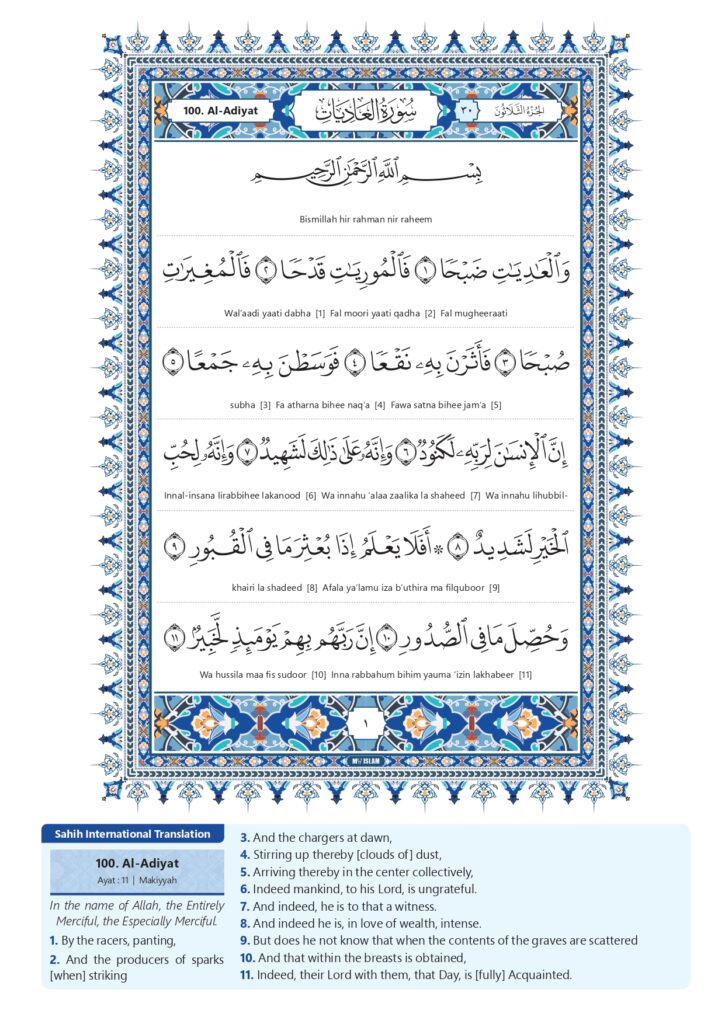 100. Al-Adiyat
سُورَةُ العَادِيَاتِ
٣٠
الجُزْءُ الثَّلَاثُونَ
بِسْمِ اللَّهِ الرَّحْمَٰنِ الرَّحِيمِ
Bismillah hir rahman nir raheem
وَٱلْعَٰدِيَٰتِ ضَبْحًا ١ فَٱلْمُورِيَٰتِ قَدْحًا ٢ فَٱلْمُغِيرَٰتِ
Wal'aadi yaati dabha [1] Fal moori yaati qadha [2] Fal mugheeraati
صُبْحًا ٣ فَأَثَرْنَ بِهِۦ نَقْعًا ٤ فَوَسَطْنَ بِهِۦ جَمْعًا ٥
subha [3] Fa atharna bihee naq'a [4] Fawa satna bihee jam'a [5]
إِنَّ ٱلْإِنسَٰنَ لِرَبِّهِۦ لَكَنُودٌ ٦ وَإِنَّهُۥ عَلَىٰ ذَٰلِكَ لَشَهِيدٌ ٧ وَإِنَّهُۥ لِحُبِّ
Innal-insana lirabbihee lakanood [6] Wa innahu 'alaa zaalika la shaheed [7] Wa innahu lihubbil-
ٱلْخَيْرِ لَشَدِيدٌ ٨ ۞ أَفَلَا يَعْلَمُ إِذَا بُعْثِرَ مَا فِى ٱلْقُبُورِ ٩
khairi la shadeed [8] Afala ya'lamu iza b'uthira ma filquboor [9]
وَحُصِّلَ مَا فِى ٱلصُّدُورِ ١٠ إِنَّ رَبَّهُم بِهِمْ يَوْمَئِذٍ لَّخَبِيرٌۢ ١١
Wa hussila maa fis sudoor [10] Inna rabbahum bihim yauma 'izin lakhabeer [11]
١
MY ISLAM
Sahih International Translation
100. Al-Adiyat
Ayat : 11 | Makiyyah
In the name of Allah, the Entirely
Merciful, the Especially Merciful.
1. By the racers, panting,
2. And the producers of sparks
[when] striking
3. And the chargers at dawn,
4. Stirring up thereby [clouds of] dust,
5. Arriving thereby in the center collectively,
6. Indeed mankind, to his Lord, is ungrateful.
7. And indeed, he is to that a witness.
8. And indeed he is, in love of wealth, intense.
9. But does he not know that when the contents of the graves are scattered
10. And that within the breasts is obtained,
11. Indeed, their Lord with them, that Day, is [fully] Acquainted.